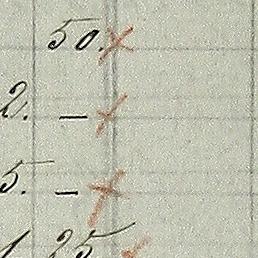 50.
2. —
5. —
1 25